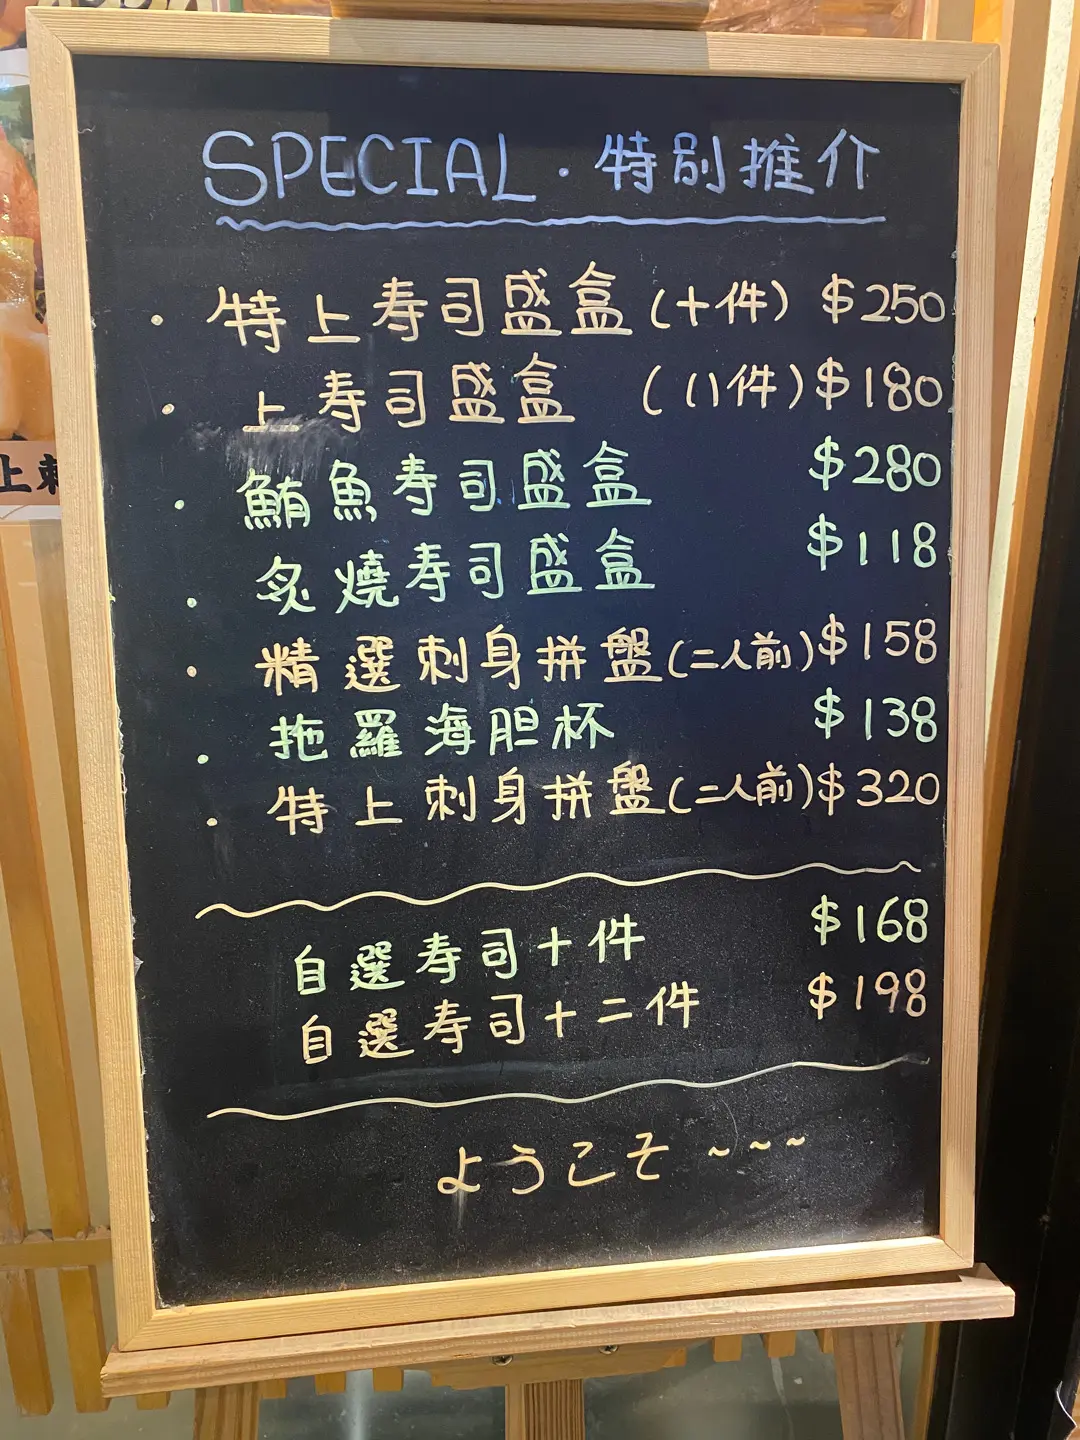 SPECIAL · 特別推介
· 特上寿司盛盒(十件) $250
· 上寿司盛盒 (八件) $180
· 鮪魚寿司盛盒 $280
· 炙燒寿司盛盒 $118
· 精選刺身拼盤(二人前) $158
· 拖羅海胆杯 $138
· 特上刺身拼盤(二人前) $320
自選寿司十件 $168
自選寿司十二件 $198
ようこそ~~~
上刺